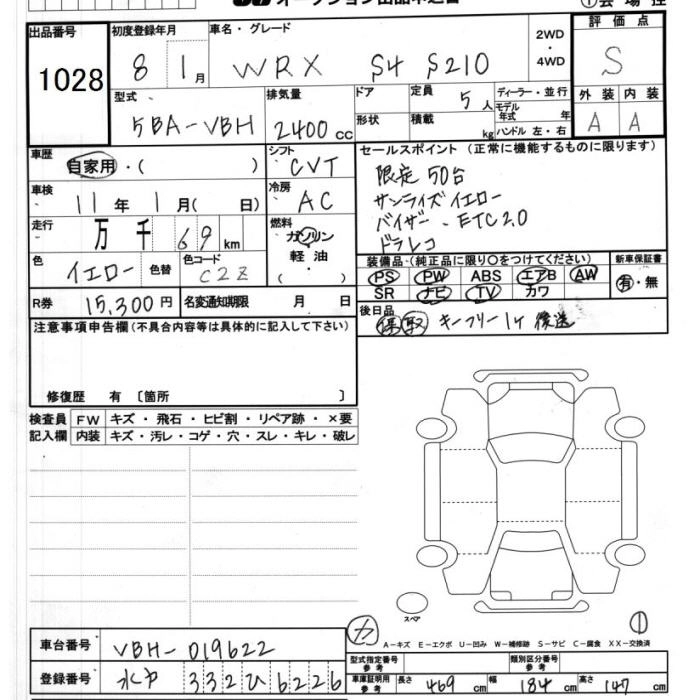 オークション出品申込書 ①会場控
出品番号 初度登録年月 車名・グレード 2WD・4WD 評価点
1028 8 1月 WRX S4 S210 S
型式 排気量 ドア 定員 ディーラー・並行 外装 内装
5BA-VBH 2400cc 5人 モデル年式 年 A A
形状 積載 kg ハンドル 左・右
車歴 自家用・( ) シフト CVT セールスポイント (正常に機能するものに限ります)
限定50台
車検 11年 1月( 日) 冷房 AC サンライズイエロー
バイザー・ETC2.0
走行 万 千 69 km 燃料 ガソリン 軽油・( ) ドラレコ
色 イエロー 色替 色コード C2Z
装備品・(純正品に限り○をつけてください) 新車保証書
PS PW ABS エアB AW 有・無
SR ナビ TV カワ
R券 15,300円 名変通知期限 月 日
後日品
保 取 キーフリー1ヶ 後送
注意事項申告欄(不具合内容等は具体的に記入して下さい)
修復歴 有 [箇所 ]
検査員 FW キズ・飛石・ヒビ割・リペア跡・×要
記入欄 内装 キズ・汚レ・コゲ・穴・スレ・キレ・破レ
スペア
A-キズ E-エクボ U-凹み W-補修跡 S-サビ C-腐食 XX-交換済
車台番号 VBH-019622
型式指定番号 参考 類別区分番号 参考
登録番号 水戸 332 ひ 6226
車庫証明用 参考 長さ 469 cm 幅 184 cm 高さ 147 cm